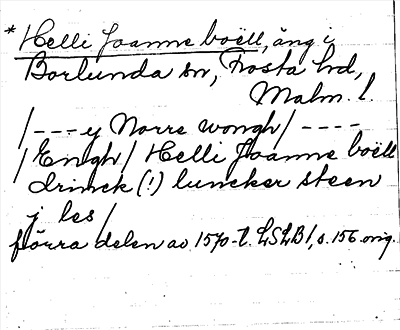 * Helli Joanne boëll, äng i
Borlunda sn, Frosta hd,
Malm. l.
/---y Norre wongh/----
/Engh/ Helli Joanne boëll
drinck (!) luncker steen
j les/
förra delen av 1570-t. LSLB1, s. 156 orig.